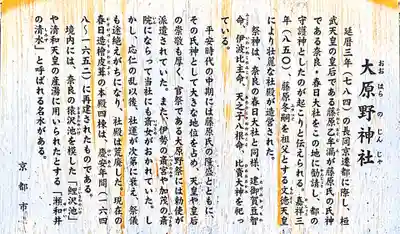 大原野神社
おおはらのじんじゃ
延暦三年(七八四)の長岡京遷都に伴い、桓
武天皇の皇后である藤原乙牟漏が藤原氏の氏神
である奈良・春日大社をこの地に勧請し、都の
守護神としたのが起こりと伝えられる。嘉祥三
年(八五〇)、藤原冬嗣を祖父とする文徳天皇
により壮麗な社殿が造営された。
祭神は、奈良の春日大社と同様、建御賀豆智
命、伊波比主命、天之子八根命、比賣大神を祀っ
ている。
平安時代の中期には藤原氏の隆盛とともに、
その氏神として大きな地位を占め、天皇や皇后
の崇敬も厚く、官祭である大原野祭には勅使が
派遣されていた。また、伊勢の斎宮や加茂の斎
院にならって当社にも斎女がおかれていた。し
かし、応仁の乱以後、社運が次第に衰え、祭儀
も途絶えがちになり、社殿は荒廃した。現在の
春日造檜皮葺の本殿四棟は、慶安年間(一六四
八〜一六五二)に再建されたものである。
境内には、奈良の猿沢池を模した「鯉沢池」
や清和天皇の産湯に用いられたとする「瀬和井
の清水」と呼ばれる名水がある。
京都市